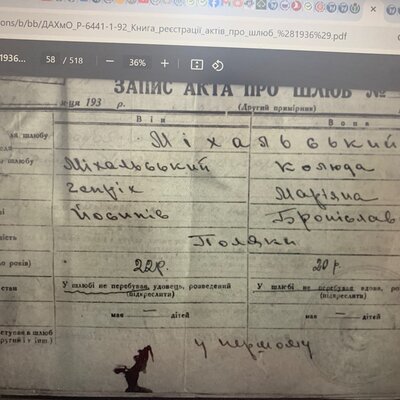 ons/b/bb/ДАХмО_Р-6441-1-92_Книга_реєстрації_актів_про_шлюб_%281936%29.pdf
1936... 58 / 518 − 36% +
ЗАПИС АКТА ПРО ШЛЮБ №
193 р. (Другий примірник)
Він Вона
шлюбу Міхальський
шлюбу Міхальський Колюда
Генріх Маріяна
Йосипів Броніслав
Поляки
років) 22р. 20 р.
У шлюбі не перебував, удовець, розведений У шлюбі не перебувала, вдова, ро
(підкреслити) (підкреслити)
має — дітей має — дітей
в шлюб у першому